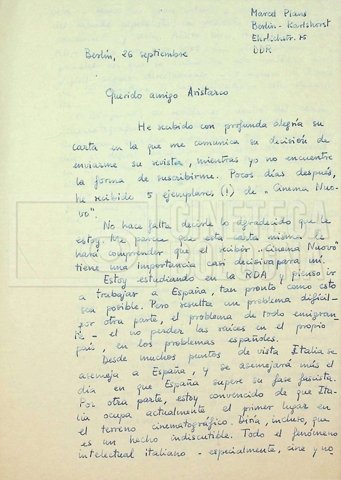 Marcel Plans
Berlin - Karlshorst
Ehrlichstr. 75
DDR
Berlin, 26 septiembre
Querido amigo Aristarco
He recibido con profunda alegría su
carta en la que me comunica su decisión de
enviarme su revista, mientras yo no encuentre
la forma de suscribirme. Pocos días después,
he recibido 5 ejemplares (!) de „Cinema Nuo-
vo".
No hace falta decirle lo agradecido que le
estoy. Me parece que esta carta misma le
hará comprender que el recibir „Cinema Nuovo"
tiene una importancia casi decisiva para mí.
Estoy estudiando en la RDA y pienso ir
a trabajar a España, tan pronto como esto
sea posible. Pero resulta un problema difícil -
por otra parte, el problema de todo emigran-
te - el no perder las raíces en el propio
país, en los problemas españoles.
Desde muchos puntos de vista Italia se
asemeja a España, y se asemejará más el
día en que España supere su fase fascista.
Por otra parte, estoy convencido de que Ita-
lia ocupa actualmente el primer lugar en
el terreno cinematográfico. Diría, incluso, que
es un hecho indiscutible. Todo el fenómeno
intelectual italiano - especialmente, cine y no
CINETECA